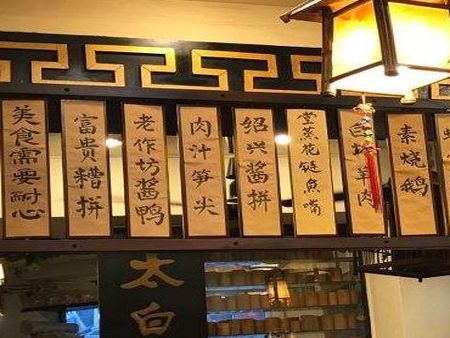 美食需要耐心
富貴糟拼
老作坊酱鸭
肉汁笋尖
绍兴酱拼
堂蒸花鲢魚嘴
白切羊肉
素烧鹅
太白